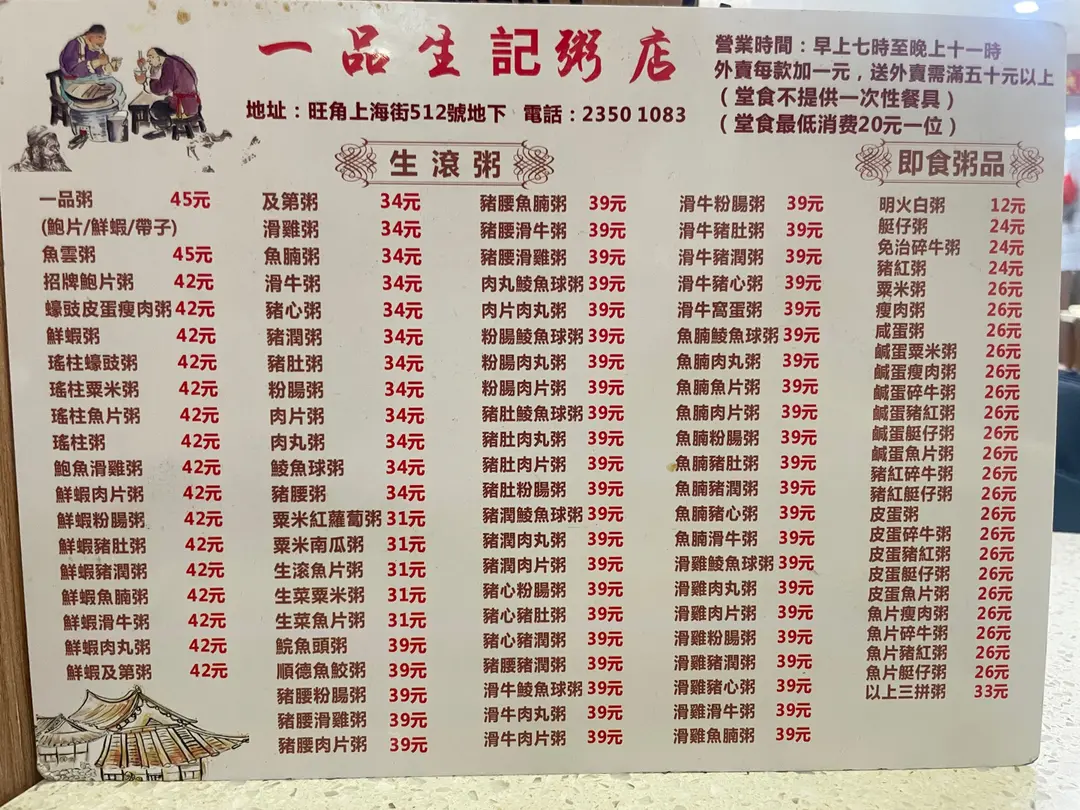 一品生記粥店
地址：旺角上海街512號地下 電話：2350 1083
營業時間：早上七時至晚上十一時
外賣每款加一元，送外賣需滿五十元以上
（堂食不提供一次性餐具）
（堂食最低消费20元一位）
生滾粥
一品粥 45元
(鮑片/鮮蝦/帶子)
魚雲粥 45元
招牌鮑片粥 42元
蠔豉皮蛋瘦肉粥 42元
鮮蝦粥 42元
瑤柱蠔豉粥 42元
瑤柱粟米粥 42元
瑤柱魚片粥 42元
瑤柱粥 42元
鮑魚滑雞粥 42元
鮮蝦肉片粥 42元
鮮蝦粉腸粥 42元
鮮蝦豬肚粥 42元
鮮蝦豬潤粥 42元
鮮蝦魚腩粥 42元
鮮蝦滑牛粥 42元
鮮蝦肉丸粥 42元
鮮蝦及第粥 42元
及第粥 34元
滑雞粥 34元
魚腩粥 34元
滑牛粥 34元
豬心粥 34元
豬潤粥 34元
豬肚粥 34元
粉腸粥 34元
肉片粥 34元
肉丸粥 34元
鯪魚球粥 34元
豬腰粥 34元
粟米紅蘿蔔粥 31元
粟米南瓜粥 31元
生滚魚片粥 31元
生菜粟米粥 31元
生菜魚片粥 31元
鯇魚頭粥 39元
順德魚鮫粥 39元
豬腰粉腸粥 39元
豬腰滑雞粥 39元
豬腰肉片粥 39元
豬腰魚腩粥 39元
豬腰滑牛粥 39元
豬腰滑雞粥 39元
肉丸鯪魚球粥 39元
肉片肉丸粥 39元
粉腸鯪魚球粥 39元
粉腸肉丸粥 39元
粉腸肉片粥 39元
豬肚鯪魚球粥 39元
豬肚肉丸粥 39元
豬肚肉片粥 39元
豬肚粉腸粥 39元
豬潤鯪魚球粥 39元
豬潤肉丸粥 39元
豬潤肉片粥 39元
豬心粉腸粥 39元
豬心豬肚粥 39元
豬心豬潤粥 39元
豬腰豬潤粥 39元
滑牛鯪魚球粥 39元
滑牛肉丸粥 39元
滑牛肉片粥 39元
滑牛粉腸粥 39元
滑牛豬肚粥 39元
滑牛豬潤粥 39元
滑牛豬心粥 39元
滑牛窩蛋粥 39元
魚腩鯪魚球粥 39元
魚腩肉丸粥 39元
魚腩魚片粥 39元
魚腩肉片粥 39元
魚腩粉腸粥 39元
魚腩豬肚粥 39元
魚腩豬潤粥 39元
魚腩豬心粥 39元
魚腩滑牛粥 39元
滑雞鯪魚球粥 39元
滑雞肉丸粥 39元
滑雞肉片粥 39元
滑雞粉腸粥 39元
滑雞豬潤粥 39元
滑雞豬心粥 39元
滑雞滑牛粥 39元
滑雞魚腩粥 39元
即食粥品
明火白粥 12元
艇仔粥 24元
免治碎牛粥 24元
豬紅粥 24元
粟米粥 26元
瘦肉粥 26元
咸蛋粥 26元
鹹蛋粟米粥 26元
鹹蛋瘦肉粥 26元
鹹蛋碎牛粥 26元
鹹蛋豬紅粥 26元
鹹蛋艇仔粥 26元
鹹蛋魚片粥 26元
豬紅碎牛粥 26元
豬紅艇仔粥 26元
皮蛋粥 26元
皮蛋碎牛粥 26元
皮蛋豬紅粥 26元
皮蛋艇仔粥 26元
皮蛋魚片粥 26元
魚片瘦肉粥 26元
魚片碎牛粥 26元
魚片豬紅粥 26元
魚片艇仔粥 26元
以上三拼粥 33元